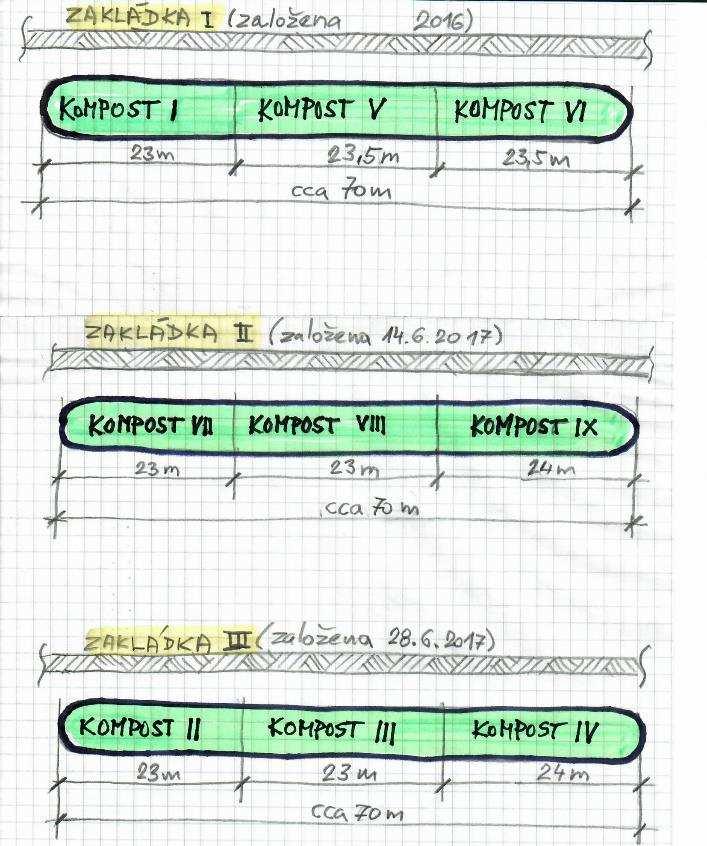 ZAKLÁDKA I (založena 2016)
KOMPOST I KOMPOST V KOMPOST VI
23m 23,5m 23,5m
cca 70m
ZAKLÁDKA II (založena 14.6.2017)
KOMPOST VII KOMPOST VIII KOMPOST IX
23m 23m 24m
cca 70m
ZAKLÁDKA III (založena 28.6.2017)
KOMPOST II KOMPOST III KOMPOST IV
23m 23m 24m
cca 70m